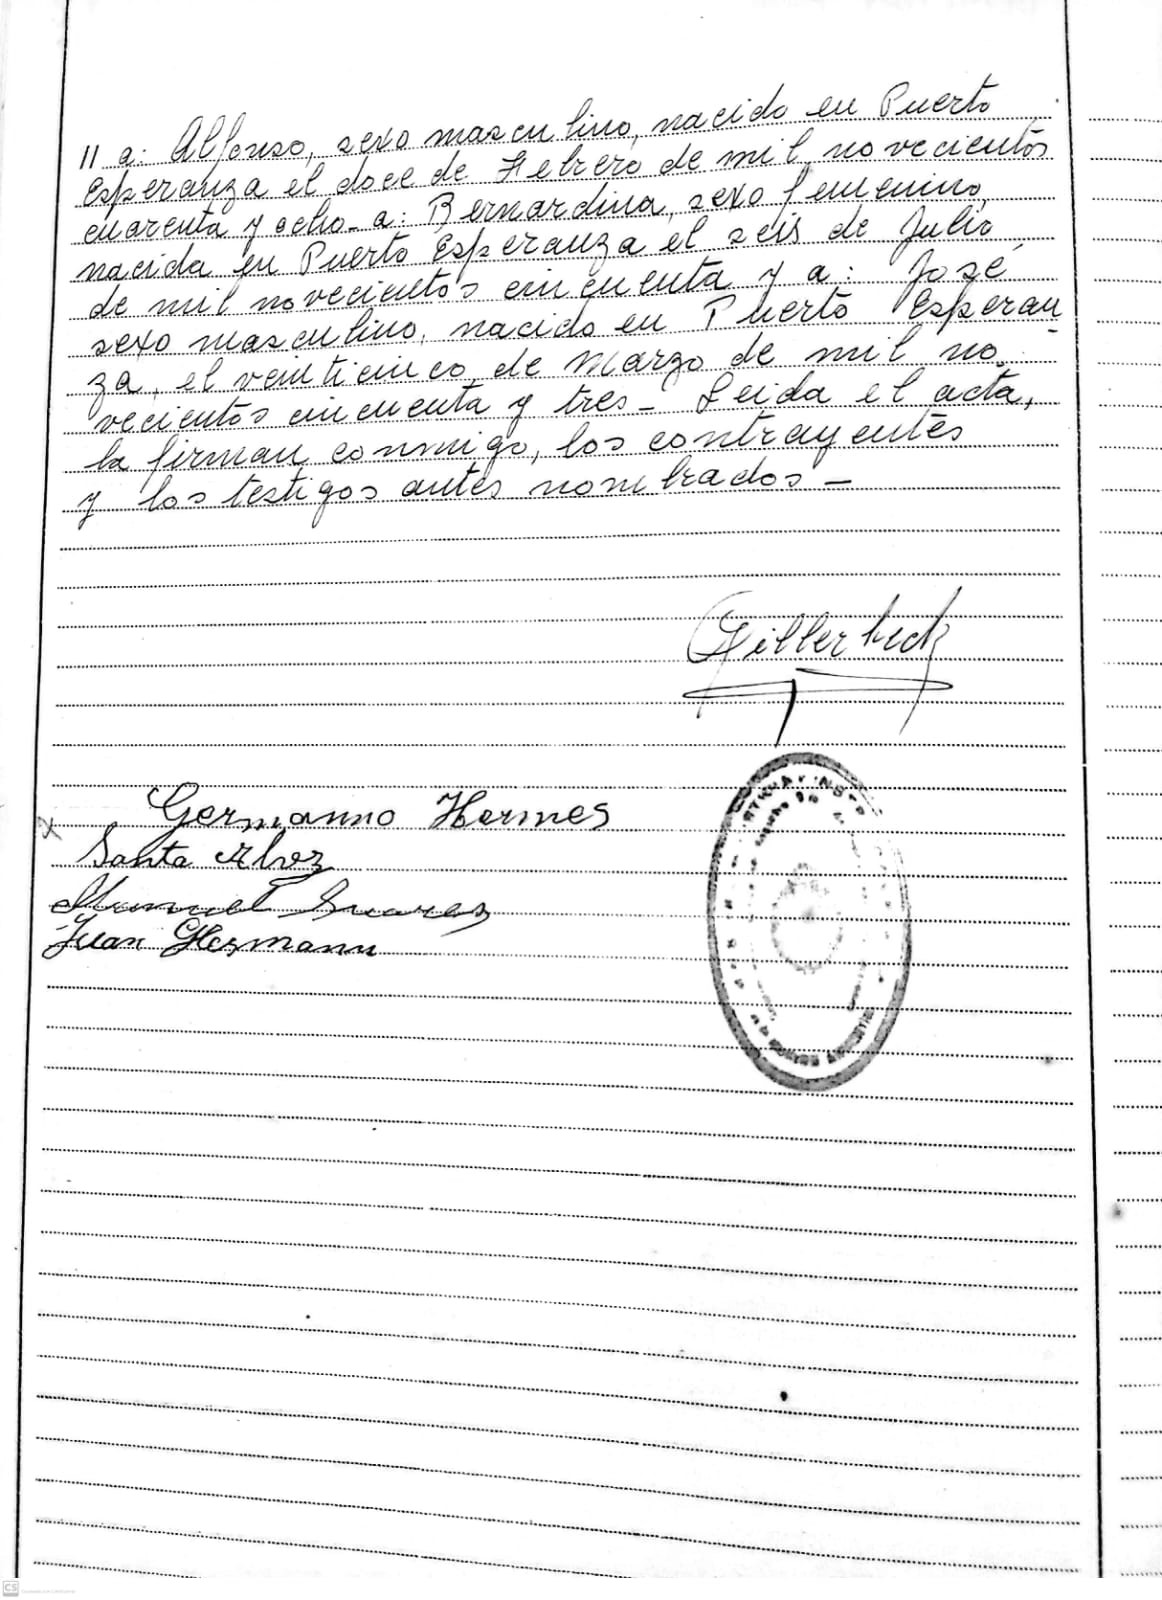 11 a: Alfonso, sexo masculino, nacido en Puerto
Esperanza el doce de Febrero de mil novecientos
cuarenta y ocho_ a: Bernardina, sexo femenino,
nacida en Puerto Esperanza el seis de Julio
de mil novecientos cincuenta y a: José
sexo masculino, nacido en Puerto Esperan
za, el veinticinco de Marzo de mil no,
vecientos cincuenta y tres_ Leida el acta,
la firman conmigo, los contrayentes
y los testigos antes nombrados_
Germanno Hermes
Santa Alvez
Manuel Suarez
Juan Hermann
CS